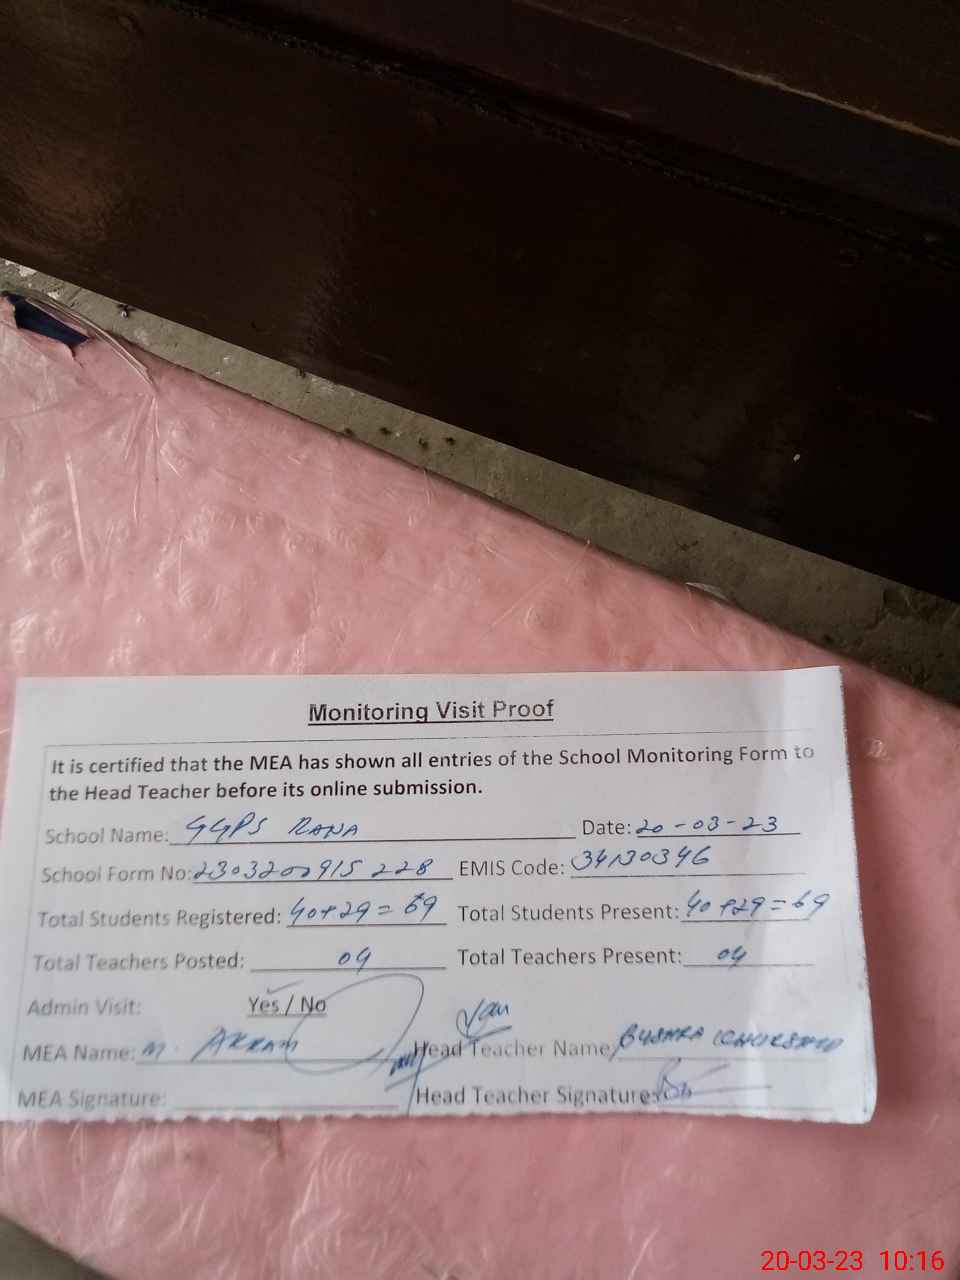 Monitoring Visit Proof
It is certified that the MEA has shown all entries of the School Monitoring Form to
the Head Teacher before its online submission.
School Name: GGPS RANA Date: 20-03-23
School Form No: 2303200915228 EMIS Code: 34130346
Total Students Registered: 40+29=69 Total Students Present: 40+29=69
Total Teachers Posted: 04 Total Teachers Present: 04
Admin Visit: Yes / No
MEA Name: M. AKRAM Head Teacher Name: BUSHRA KHURSHEED
MEA Signature: Head Teacher Signature:
20-03-23 10:16